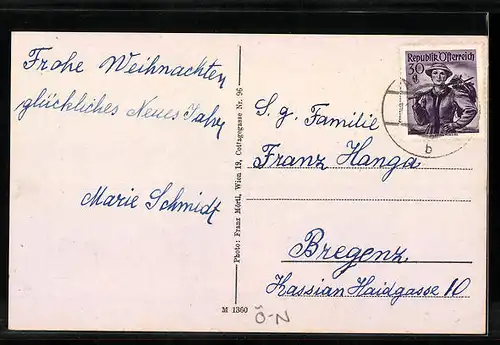 Frohe Weihnachten
glückliches Neues Jahr
Marie Schmidt
Photo: Franz Mörtl, Wien 19, Cottagegasse Nr. 96
M 1360
Ö-N
Republik Österreich
30
g
b
S. g. Familie
Franz Hanga
Bregenz
Kassian Haidgasse 10